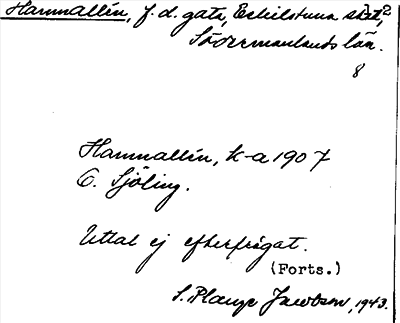 Hamnallén, f. d. gata, Eskilstuna stad, 1-2
Södermanlands län.
8
Hamnallén, k-a 1907
C. Sjöling.
Uttal ej efterfrågat.
(Forts.)
S. Plange Jacobson, 1943.